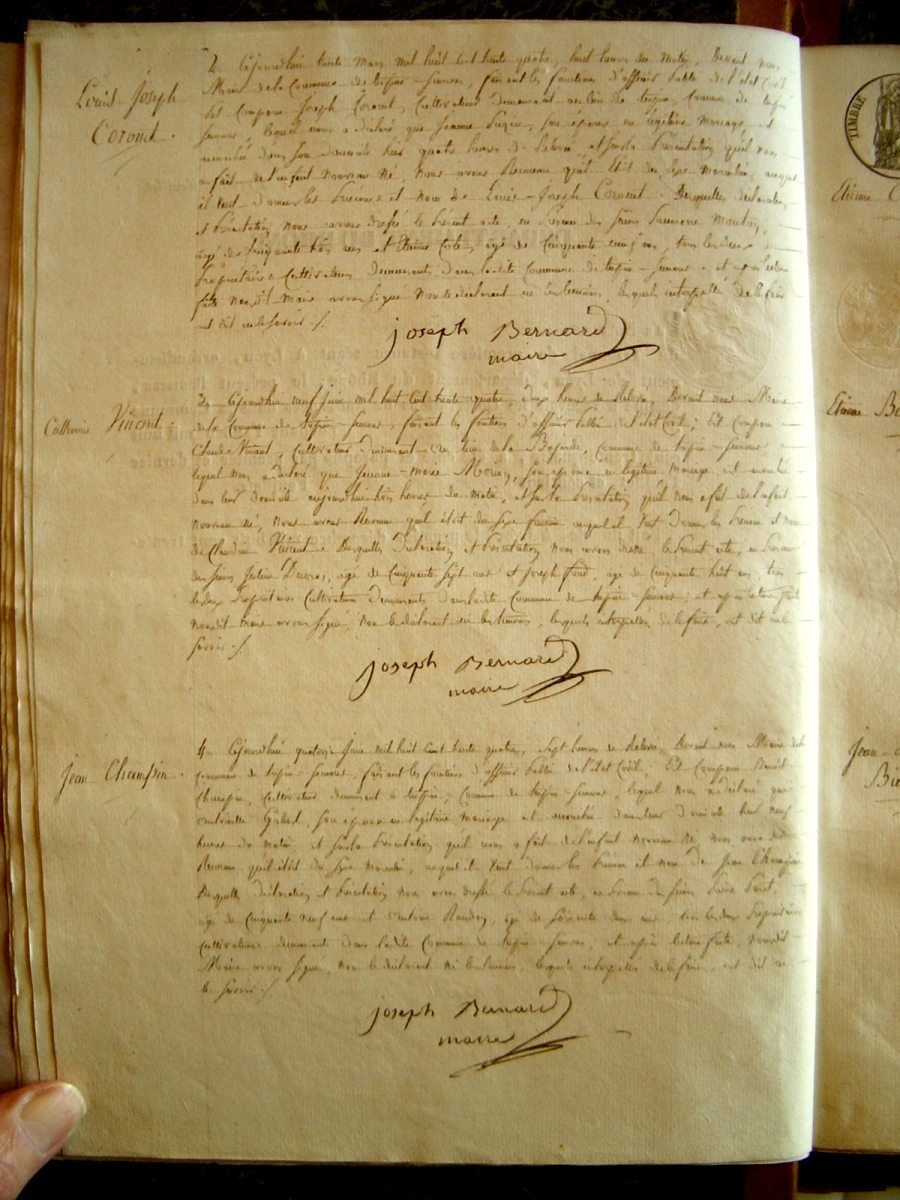 Louis-Joseph
Coront.
2. Cejourd'hui trente Mars mil huit cent trente quatre, huit heures du Matin, Devant nous
Maire de la Commune de tupin-Semons, faisant les fonctions d'officier Public de l'état Civil
Est Comparu Joseph Coront, Cultivateur demeurant au lieu de tupin, Commune de tupin
Semons, lequel nous a déclaré que Jeanne son épouse en légitime Mariage, est
accouchée dans son domicile hier quatre heures de Relevé, et sur la Présentation qu'il nous
a fait de l'enfant nouveau né, Nous avons Reconnu qu'il Etait du Sexe Masculin, auquel
il Veut donner les Prenoms et nom de Louis-Joseph Coront. Desquelles déclaration
et Présentation nous avons dressé le Présent acte, en Présence des sieurs
agé de Cinquante trois ans et Etienne agé de Cinquante cinq ans, tous les deux
Propriétaires Cultivateurs Demeurants dans la dite Commune de tupin-Semons et après lecture
faite Nousdit Maire avons Signé Non le déclarant ni les temoins, lesquels interpellés de le faire
ont dit ne le Savoir ./.
joseph Bernard
maire
Catherine Vincent.
3. Cejourd'hui neuf juin mil huit cent trente quatre, heures de Relevée, Devant nous Maire
de la Commune de tupin-Semons, faisant les fonctions d'officier Public de l'état Civil; Est Comparu
Claude Vincent, Cultivateur Demeurant au lieu de la Commune de tupin-Semons,
lequel nous a déclaré que Jeanne-Marie son épouse en légitime Mariage est accouchée
dans leur domicile aujourdhui trois heures du matin, et sur la Présentation qu'il nous a fait de l'enfant
nouveau né, Nous avons Reconnu quil était du Sexe féminin auquel il Veut donner les Prenoms et nom
de Claudine Vincent. Desquelles Déclaration et Présentation Nous avons dressé le Présent acte, en Présence
des sieurs agé de Cinquante Sept ans et Joseph agé de Cinquante huit ans, tous
les deux Propriétaires Cultivateurs Demeurants dans la dite Commune de tupin-Semons; et après lecture faite
Nousdit Maire avons Signé, Non le déclarant ni les temoins, lesquels interpellés de le faire, ont dit ne le
Savoir ./.
joseph Bernard
maire
Jean Champin.
4. Cejourd'hui quatorze juin mil huit cent trente quatre, Sept heures de Relevée, Devant nous Maire de la
Commune de tupin-Semons, faisant les fonctions d'officier Public de l'état Civil. Est Comparu Benoit
Champin, Cultivateur demeurant à tupin, Commune de tupin-Semons, lequel Nous a déclaré que
son épouse en légitime Mariage est accouchée dans leur domicile hier neuf
heures du Matin, et sur la Présentation qu'il nous a fait de l'enfant nouveau Né, Nous avons
Reconnu qu'il était du Sexe Masculin, auquel il Veut donner les Prénoms et nom de Jean Champin
Desquelles déclaration et Présentation Nous avons dressé le Présent acte, en Présence des sieurs Pierre
agé de Cinquante neuf ans et Antoine agé de Soixante deux ans tous les deux Propriétaires
Cultivateurs demeurant dans la dite Commune de tupin-Semons, et après lecture faite, Nousdit
Maire avons Signé, Non le déclarant Ni les temoins, lesquels interpellés de le faire, ont dit ne
le Savoir ./.
joseph Bernard
maire
TIMBRE
Etienne
Etienne
Jean